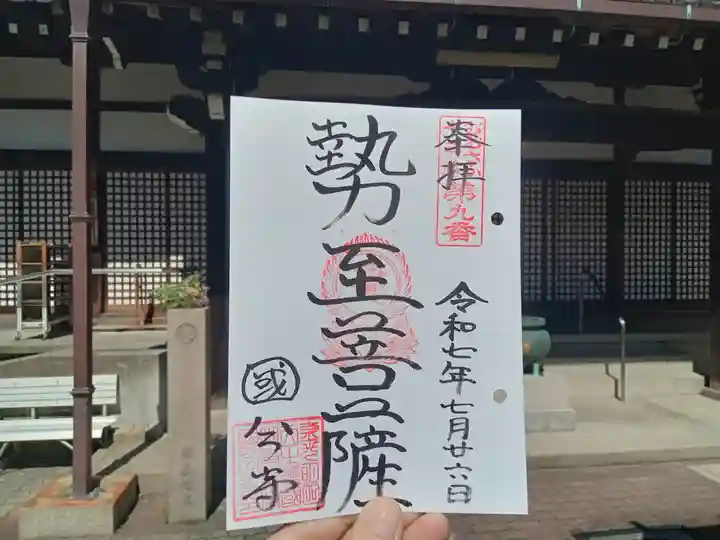 奉拝
第九番
令和七年七月廿六日
勢至菩薩
國分寺